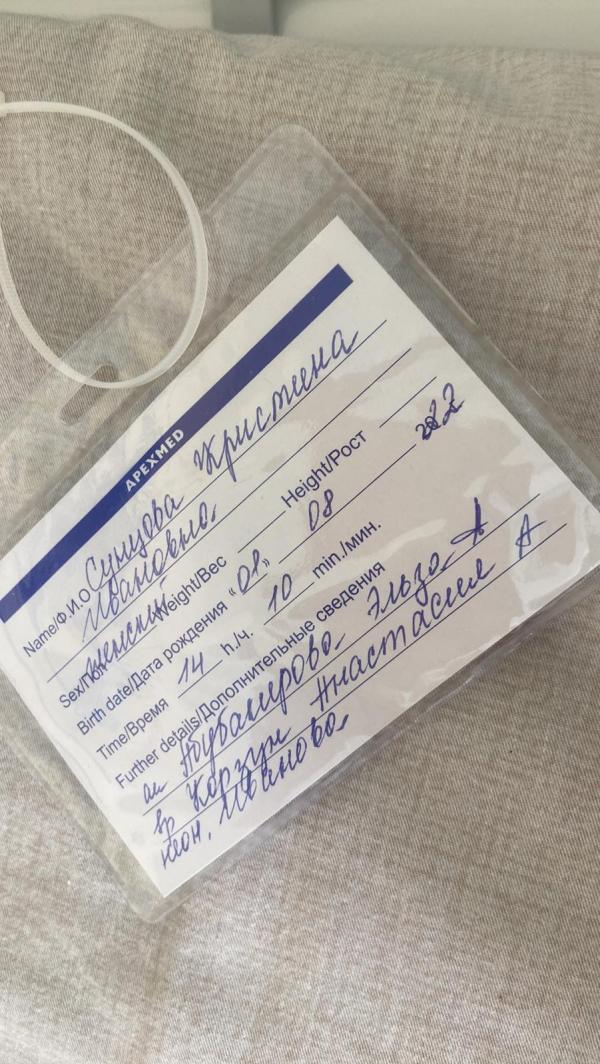 APEXMED
Name/Ф.И.О Сунцова Кристина
Ивановна
Sex/Пол женский Weight/Вес Height/Рост
Birth date/Дата рождения "01" 08 2022
Time/Время 14 h/ч. 10 min./мин.
Further details/Дополнительные сведения
ак Эльза А
вр Корзун Анастасия А
неон. Иванова